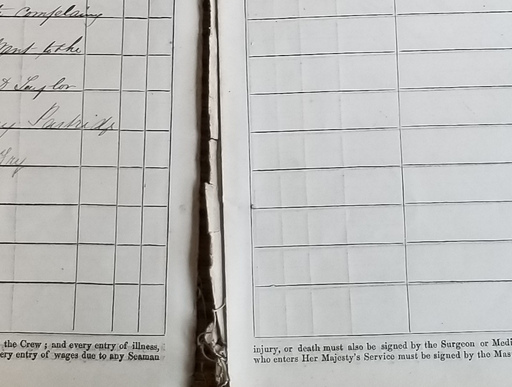 complaing
ment to the
& Taylor
y Partridge
the Crew ; and every entry of illness,
ery entry of wages due to any Seaman
injury, or death must also be signed by the Surgeon or Medi
who enters Her Majesty's Service must be signed by the Mas